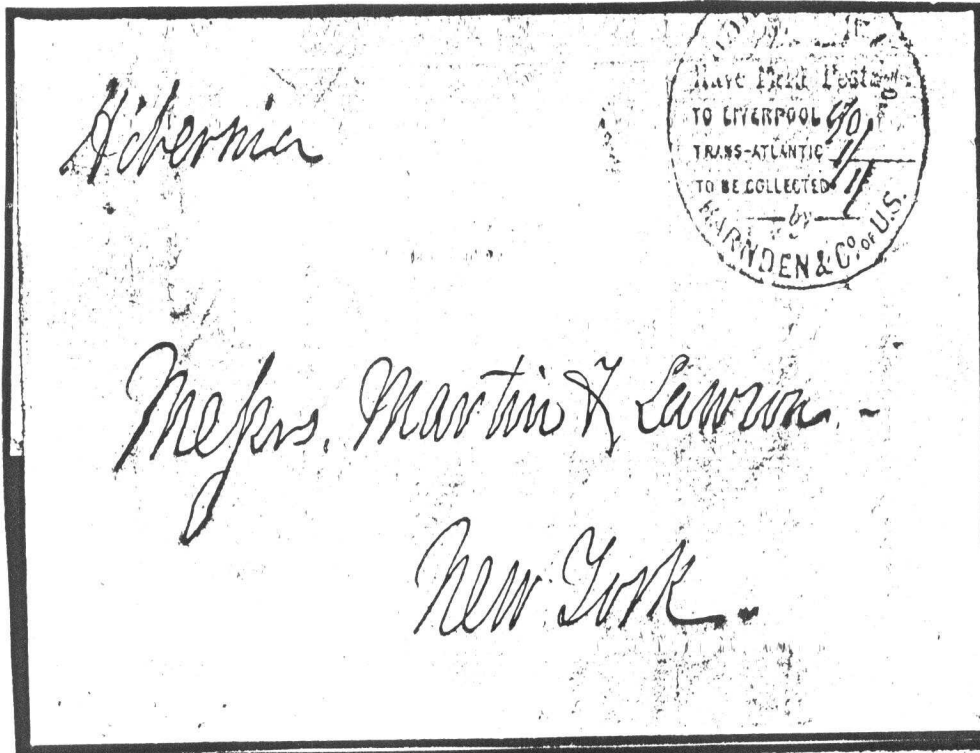 Hibernia
Have Paid Postage
TO LIVERPOOL
TRANS-ATLANTIC 1/
TO BE COLLECTED 1/
by
HARNDEN & Co. OF U.S.
Messrs. Martin & Lawson. -
New York.